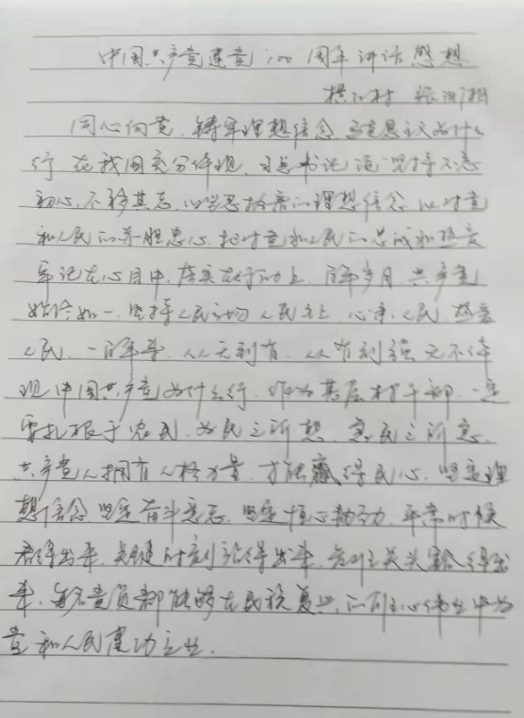 中国共产党建党100周年讲话感想
横江村 张洪翔
同心向党,铸牢理想信念,马克思主义为什么
行 在我国充分体现,习总书记说"坚持不忘
初心,不移其志,以坚忍执着的理想信念,以对党
和人民的赤胆忠心,把对党和人民的忠诚和热爱
牢记在心目中,落实在行动上,百年岁月,共产党
始终如一,坚持人民立场 人民至上,心系人民,热爱
人民,一百年来,从无到有,从有到强 无不体
现中国共产党为什么行,作为基层村干部,还
需扎根于农民,为民之所想,急民之所急,
共产党人拥有人格力量,才能赢得民心,坚定理
想信念 坚定奋斗意志,坚定恒心韧劲,平常时候
看得出来,关键时刻站得出来,危难关头豁得出
来,每名党员都能够在民族复兴的伟业中为
党和人民建功立业.